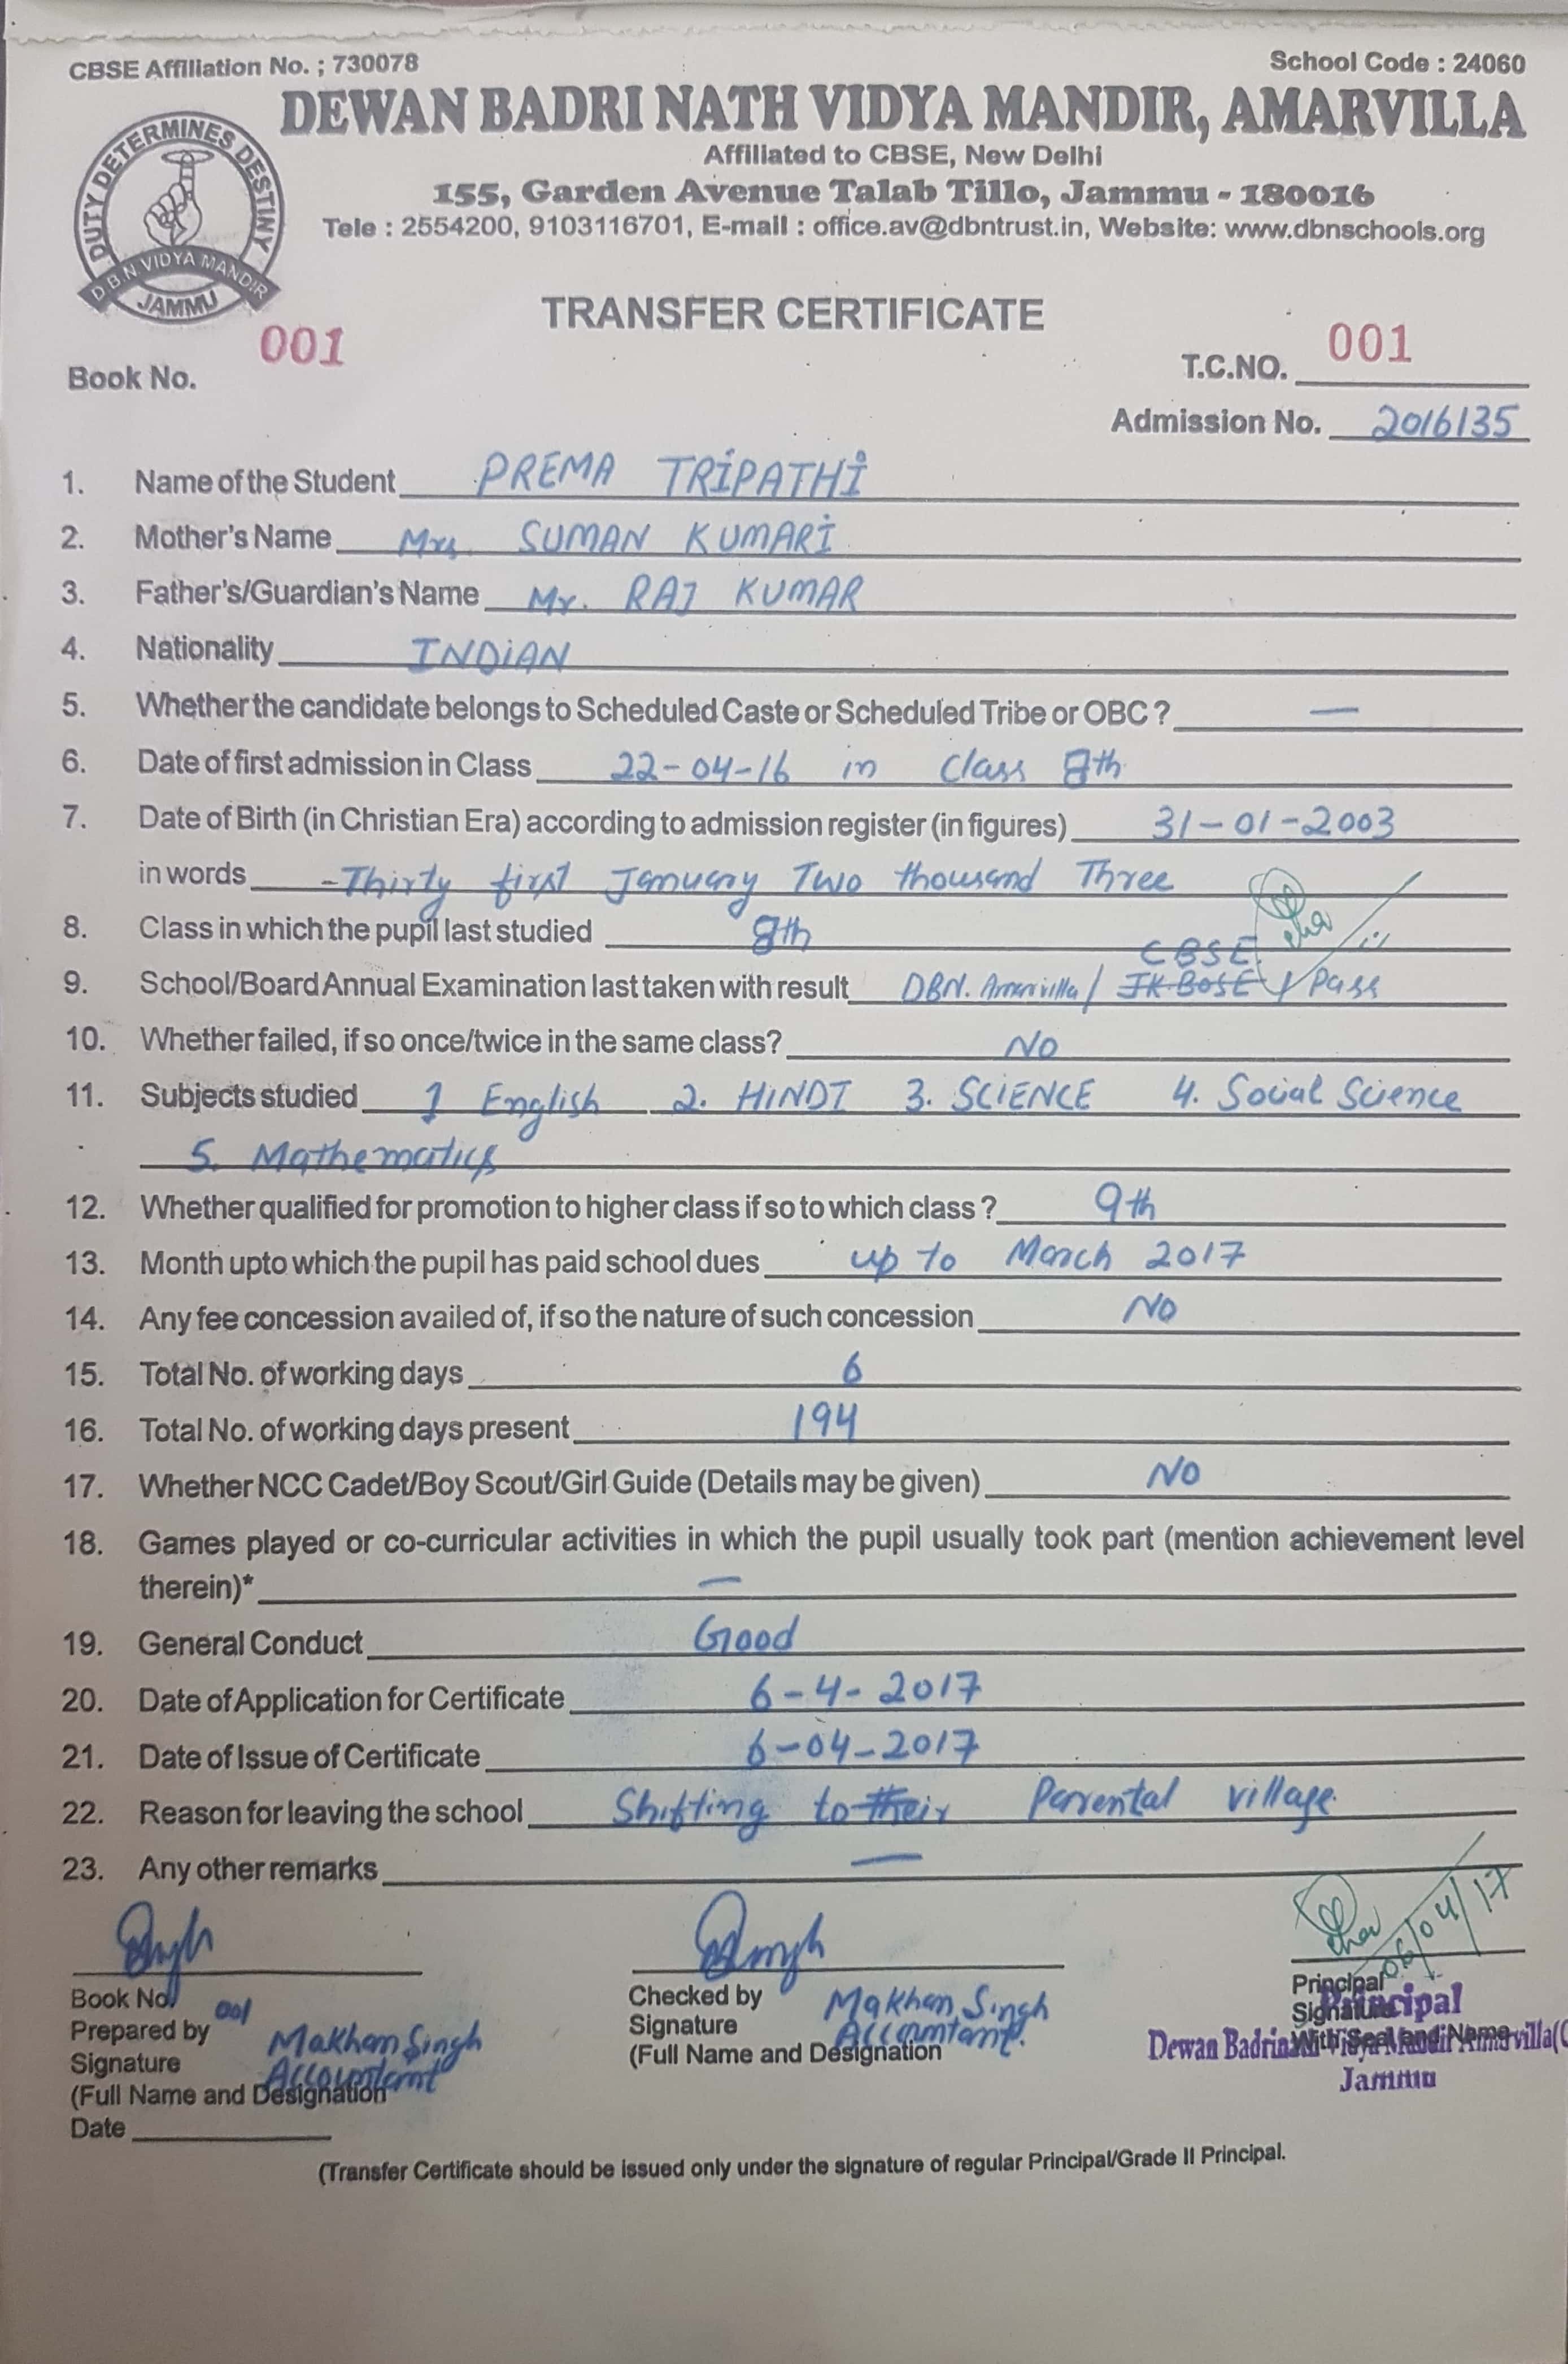 CBSE Affiliation No. ; 730078 School Code : 24060
DEWAN BADRI NATH VIDYA MANDIR, AMARVILLA
Affiliated to CBSE, New Delhi
155, Garden Avenue Talab Tillo, Jammu - 180016
Tele : 2554200, 9103116701, E-mail : office.av@dbntrust.in, Website: www.dbnschools.org
DUTY DETERMINES DESTINY
D.B.N VIDYA MANDIR
JAMMU
TRANSFER CERTIFICATE
Book No. 001 T.C.NO. 001
Admission No. 2016135
1. Name of the Student PREMA TRIPATHI
2. Mother's Name Mrs. SUMAN KUMARI
3. Father's/Guardian's Name Mr. RAJ KUMAR
4. Nationality INDIAN
5. Whether the candidate belongs to Scheduled Caste or Scheduled Tribe or OBC ? —
6. Date of first admission in Class 22-04-16 in Class 8th
7. Date of Birth (in Christian Era) according to admission register (in figures) 31-01-2003
in words Thirty first January Two thousand Three
8. Class in which the pupil last studied 8th
CBSE
9. School/Board Annual Examination last taken with result DBN. Amarvilla / JK BOSE / Pass
10. Whether failed, if so once/twice in the same class? NO
11. Subjects studied 1 English 2. HINDI 3. SCIENCE 4. Social Science
5. Mathematics
12. Whether qualified for promotion to higher class if so to which class ? 9th
13. Month upto which the pupil has paid school dues up to March 2017
14. Any fee concession availed of, if so the nature of such concession NO
15. Total No. of working days 6
16. Total No. of working days present 194
17. Whether NCC Cadet/Boy Scout/Girl Guide (Details may be given) NO
18. Games played or co-curricular activities in which the pupil usually took part (mention achievement level
therein)* —
19. General Conduct Good
20. Date of Application for Certificate 6-4-2017
21. Date of Issue of Certificate 6-04-2017
22. Reason for leaving the school Shifting to their Parental village.
23. Any other remarks —
06/04/17
Book No. 001
Prepared by Makhan Singh
Signature Accountant
(Full Name and Designation
Date
Checked by Makhan Singh
Signature Accountant.
(Full Name and Designation
Principal
Signature
With Seal and Name
Principal
Dewan Badrinath Vidya Mandir Amarvilla(
Jammu
(Transfer Certificate should be issued only under the signature of regular Principal/Grade II Principal.